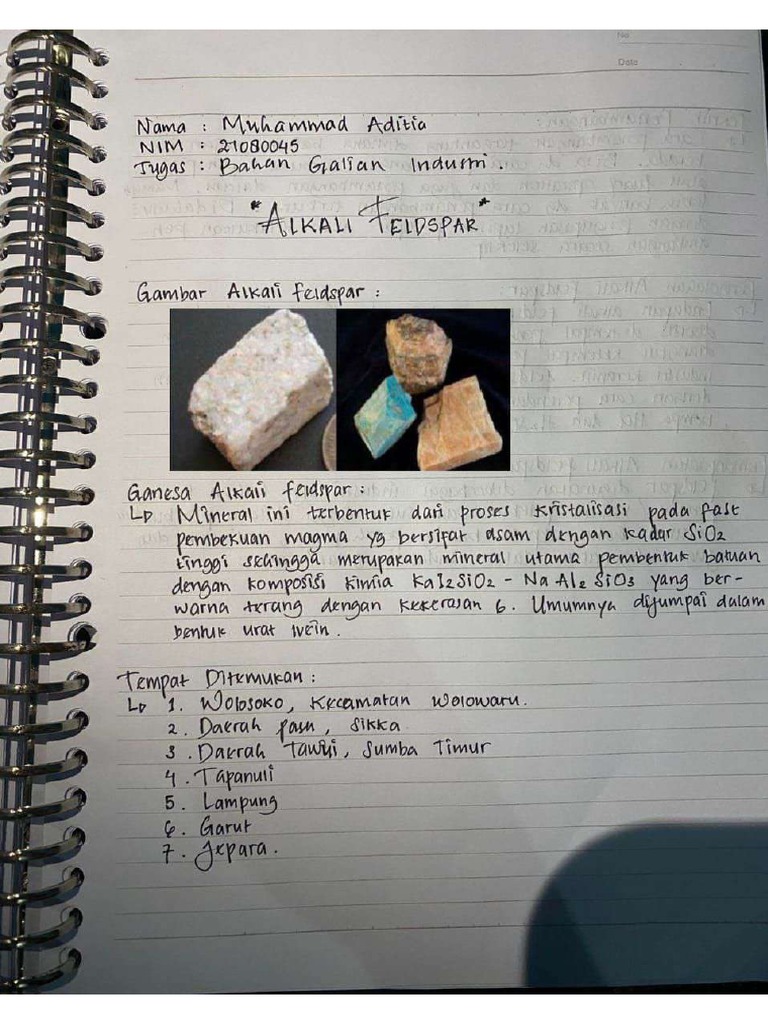 No
Date
Nama : Muhammad Aditia
NIM : 21080045
Tugas : Bahan Galian Industri.
"ALKALI FELDSPAR"
Gambar Alkali feldspar :
Ganesa Alkali feldspar :
Mineral ini terbentuk dari proses kristalisasi pada fase
pembekuan magma yg bersifat asam dengan kadar SiO2
tinggi sehingga merupakan mineral utama pembentuk batuan
dengan komposisi kimia KaI2SiO2 - NaAl2SiO3 yang ber-
warna terang dengan kekerasan 6. Umumnya dijumpai dalam
bentuk urat
Tempat Ditemukan :
1. Wolosoko, Kecamatan Wolowaru.
2. Daerah , Sikka
3. Daerah , Sumba Timur
4. Tapanuli
5. Lampung
6. Garut
7. Jepara.